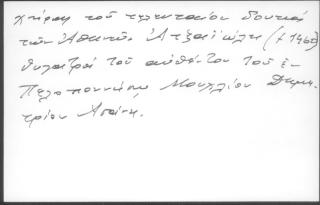 χήραν τοῦ τελευταίου δουκός
τῶν Ἀθηνῶν Ἀτζαϊώλη († 1460)
θυγατρός τοῦ αὐθέντου τοῦ ἐν
Πελοποννήσῳ Μουχλίου Δημη-
τρίου Ἀσάνη.